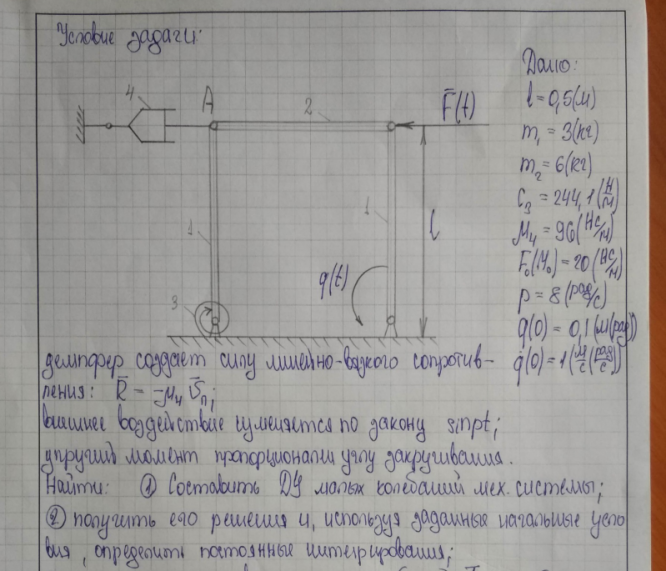 Условие задачи:
Дано:
l = 0,5(м)
m₁ = 3(кг)
m₂ = 6(кг)
C₃ = 244,1(Н/м)
μ₄ = 96(НС/м)
F₀(M₀) = 20(НС/м)
p = 8(рад/с)
q(0) = 0,1(м(рад))
q̇(0) = 1(м/с(рад/с))
4
A
2
F̄(t)
1
1
l
q(t)
3
демпфер создает силу линейно-вязкого сопротив-
ления: R̄ = -μ₄ V̄п;
внешнее воздействие изменяется по закону sinpt;
упругий момент пропорционален углу закручивания.
Найти: ① Составить ДУ малых колебаний мех. системы;
② получить его решения и, используя заданные начальные усло
вия, определить постоянные интегрирования;